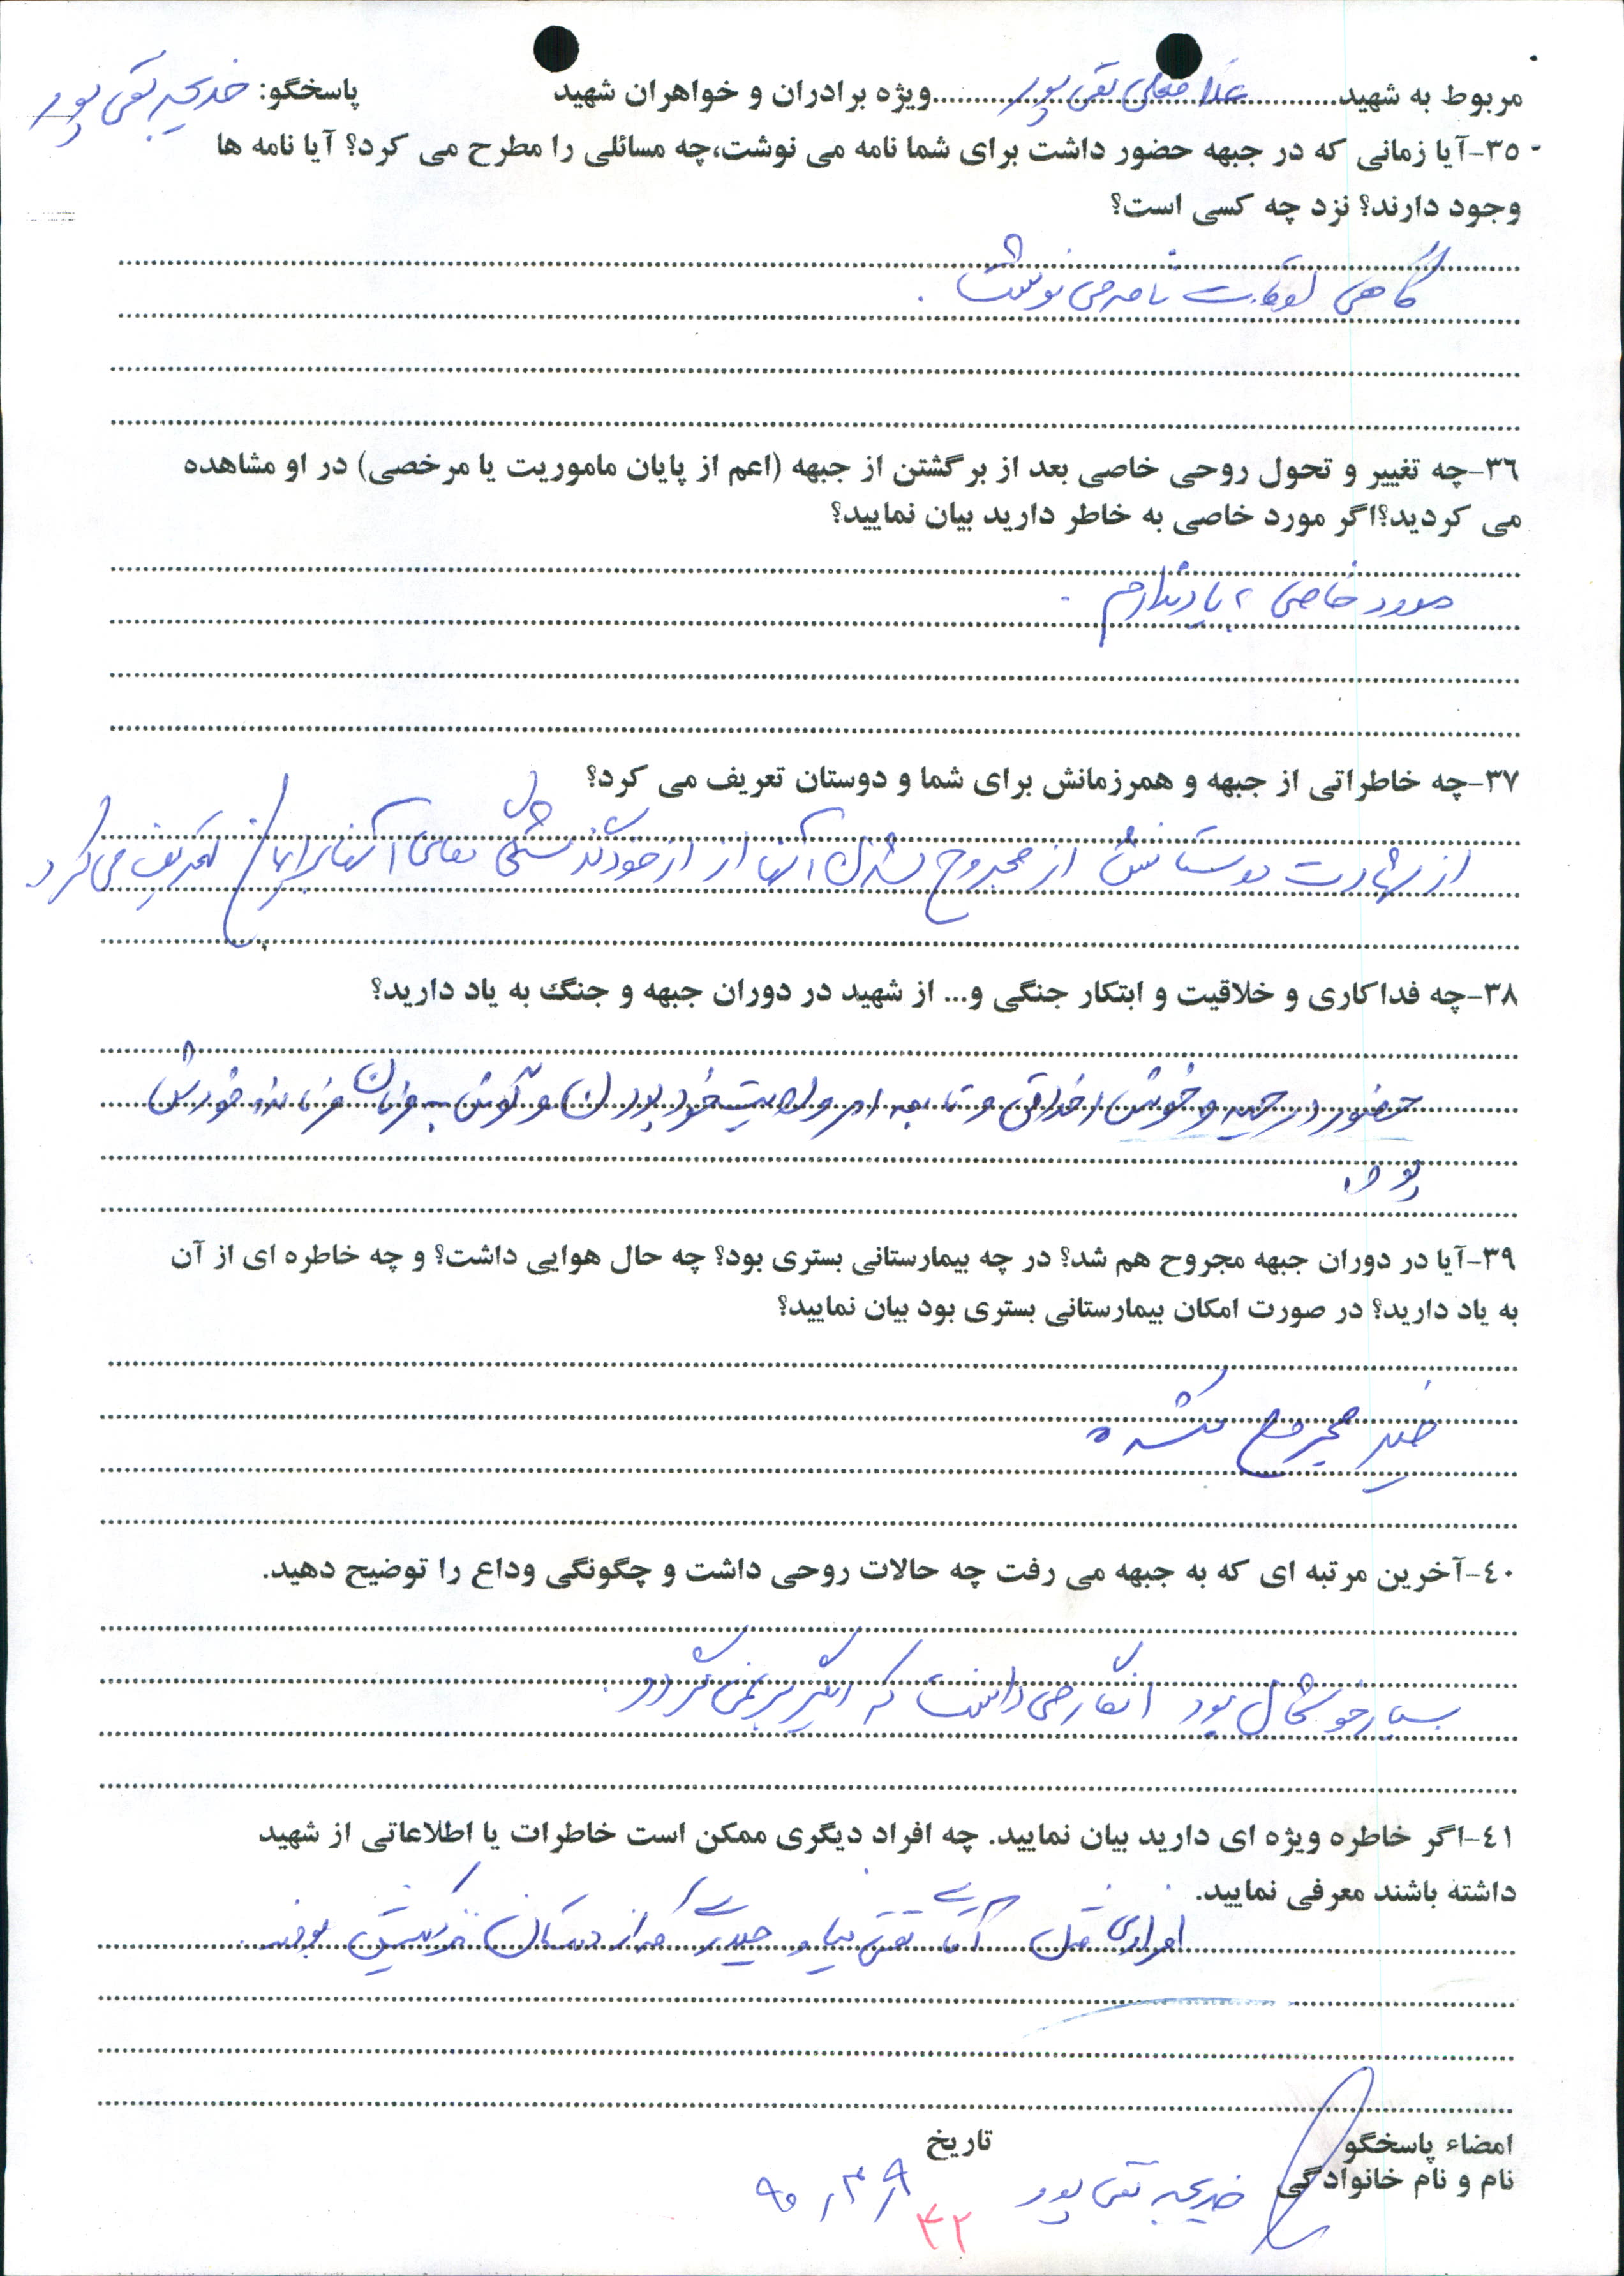 مربوط به شهید غلامعلی تقی پور ویژه برادران و خواهران شهید پاسخگو: خدیجه تقی پور
۳۵-آیا زمانی که در جبهه حضور داشت برای شما نامه می نوشت،چه مسائلی را مطرح می کرد؟ آیا نامه ها
وجود دارند؟ نزد چه کسی است؟
گاهی اوقات نامه می نوشت .
۳۶-چه تغییر و تحول روحی خاصی بعد از برگشتن از جبهه (اعم از پایان ماموریت یا مرخصی) در او مشاهده
می کردید؟اگر مورد خاصی به خاطر دارید بیان نمایید؟
مورد خاصی به یاد ندارم .
۳۷-چه خاطراتی از جبهه و همرزمانش برای شما و دوستان تعریف می کرد؟
از شهادت دوستانش از مجروح شدن آنها از ازخودگذشتگی های آنها برایمان تعریف می کرد
۳۸-چه فداکاری و خلاقیت و ابتکار جنگی و... از شهید در دوران جبهه و جنگ به یاد دارید؟
حضور در جبهه و خوش اخلاقی و تابعه امر ولایت خود بودن و گوش به فرمان فرمانده خودش
بود.
۳۹-آیا در دوران جبهه مجروح هم شد؟ در چه بیمارستانی بستری بود؟ چه حال هوایی داشت؟ و چه خاطره ای از آن
به یاد دارید؟ در صورت امکان بیمارستانی بستری بود بیان نمایید؟
خیر مجروح نشده
۴۰-آخرین مرتبه ای که به جبهه می رفت چه حالات روحی داشت و چگونگی وداع را توضیح دهید.
بسیار خوشحال بود انگار می دانست که دیگر بر نمی گردد .
۴۱-اگر خاطره ویژه ای دارید بیان نمایید. چه افراد دیگری ممکن است خاطرات یا اطلاعاتی از شهید
داشته باشند معرفی نمایید.
افرادی مثل آقای تقی نیا و حیدری که از دوستان نزدیکش بودند.
امضاء پاسخگو تاریخ
نام و نام خانوادگی خدیجه تقی پور ۹۰/۳/۹
۴۲